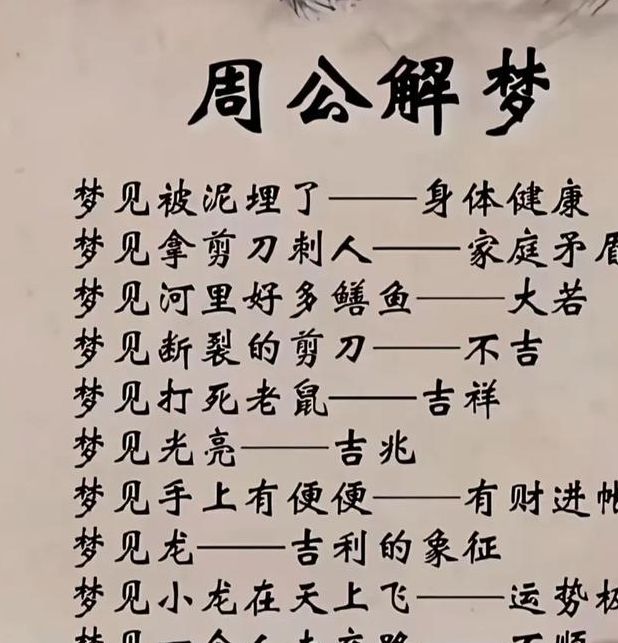 周公解梦
梦见被泥埋了——身体健康
梦见拿剪刀刺人——家庭矛盾
梦见河里好多鳝鱼——大若
梦见断裂的剪刀——不吉
梦见打死老鼠——吉祥
梦见光亮——吉兆
梦见手上有便便——有财进帐
梦见龙——吉利的象征
梦见小龙在天上飞——运势极